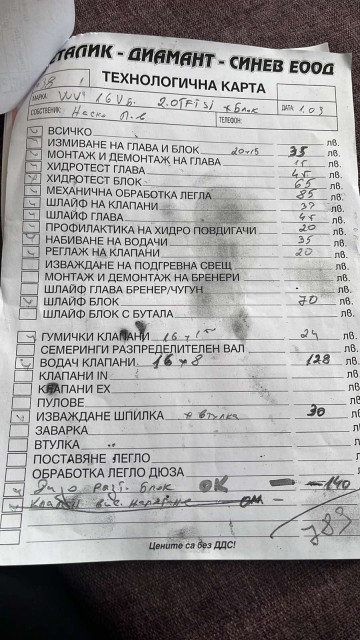 СТАЛИК - ДИАМАНТ - СИНЕВ ЕООД
ТЕХНОЛОГИЧНА КАРТА
МАРКА: VW 16Vб. 2.0TFSi + блок ДАТА: 1.03
СОБСТВЕНИК: Наско ТЕЛЕФОН:
ВСИЧКО лв.
ИЗМИВАНЕ НА ГЛАВА И БЛОК 20+15 35 лв.
МОНТАЖ И ДЕМОНТАЖ НА ГЛАВА 15 лв.
ХИДРОТЕСТ ГЛАВА 45 лв.
ХИДРОТЕСТ БЛОК 65 лв.
МЕХАНИЧНА ОБРАБОТКА ЛЕГЛА 85 лв.
ШЛАЙФ НА КЛАПАНИ 32 лв.
ШЛАЙФ ГЛАВА 45 лв.
ПРОФИЛАКТИКА НА ХИДРО ПОВДИГАЧИ 20 лв.
НАБИВАНЕ НА ВОДАЧИ 35 лв.
РЕГЛАЖ НА КЛАПАНИ 20 лв.
ИЗВАЖДАНЕ НА ПОДГРЕВНА СВЕЩ лв.
МОНТАЖ И ДЕМОНТАЖ НА БРЕНЕРИ лв.
ШЛАЙФ ГЛАВА БРЕНЕР/ЧУГУН лв.
ШЛАЙФ БЛОК 70 лв.
ШЛАЙФ БЛОК С БУТАЛА лв.
ГУМИЧКИ КЛАПАНИ 16 24 лв.
СЕМЕРИНГИ РАЗПРЕДЕЛИТЕЛЕН ВАЛ лв.
ВОДАЧ КЛАПАНИ 16 x 8 128 лв.
КЛАПАНИ IN лв.
КЛАПАНИ EX лв.
ПУЛОВЕ лв.
ИЗВАЖДАНЕ ШПИЛКА + втулка 30 лв.
ЗАВАРКА лв.
ВТУЛКА лв.
ПОСТАВЯНЕ ЛЕГЛО лв.
ОБРАБОТКА ЛЕГЛО ДЮЗА лв.
блок OK 140
783
Цените са без ДДС!